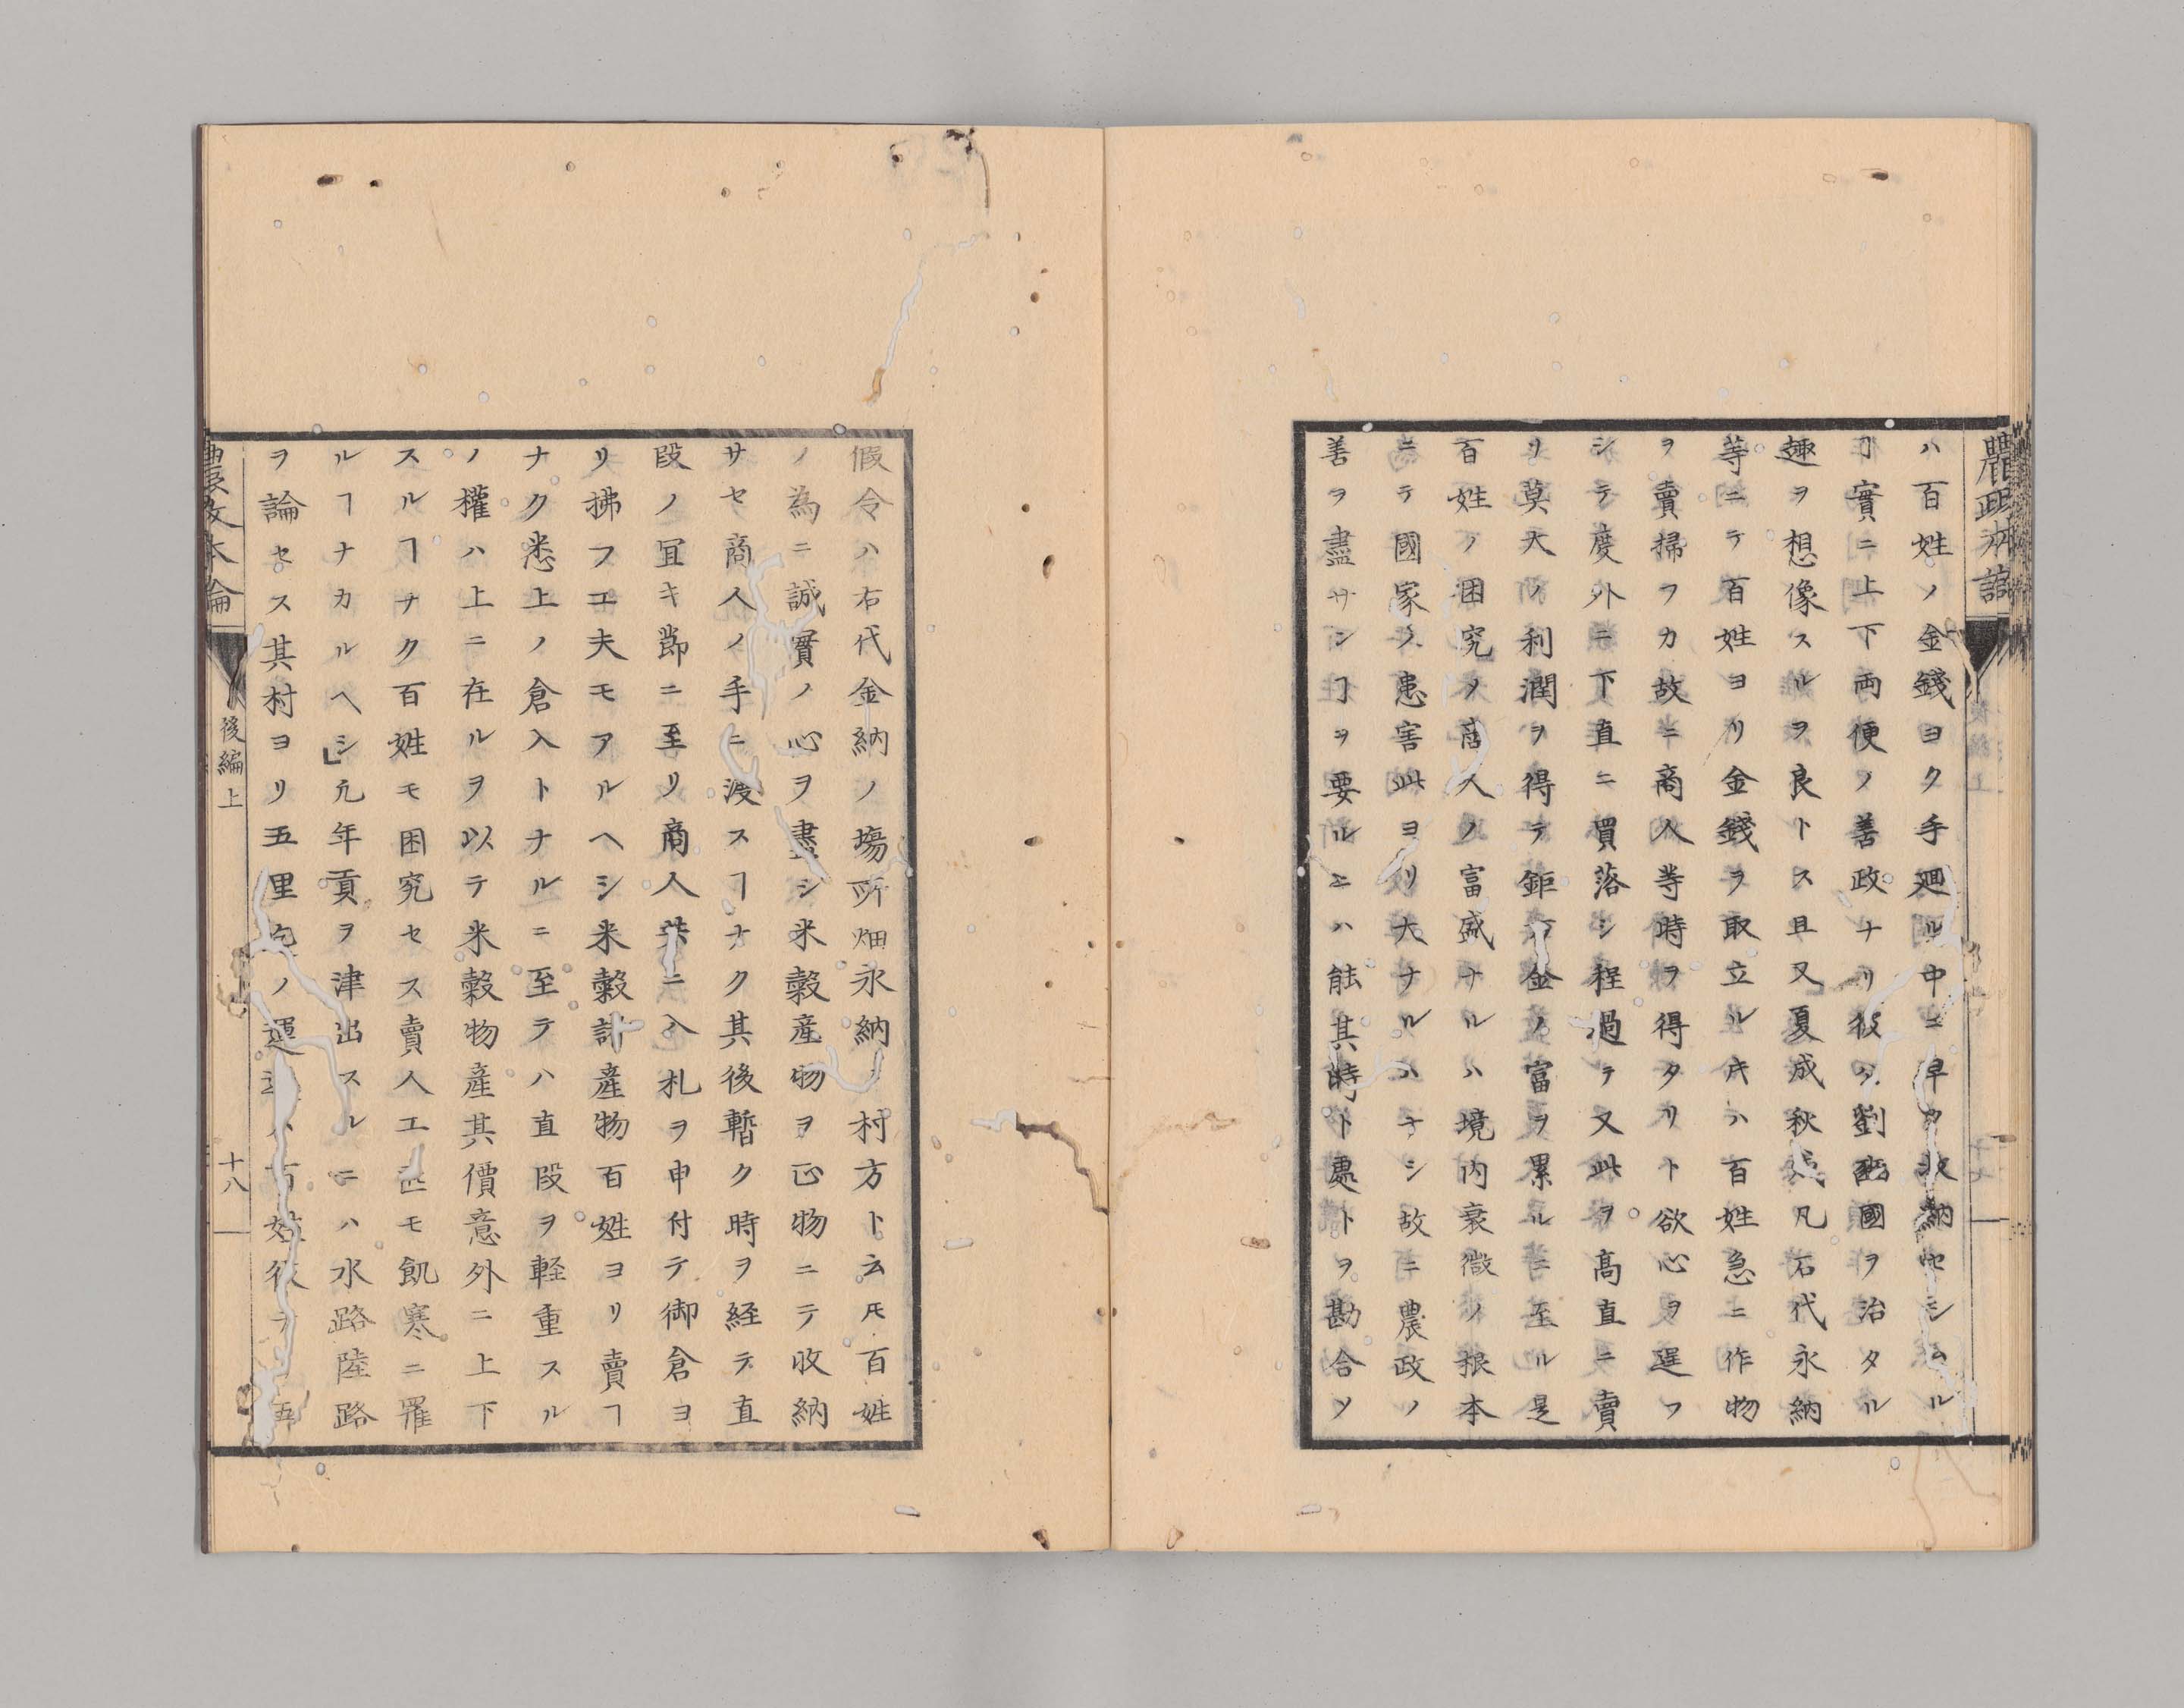 ハ百姓ノ金錢ヨク手廻ル中ニ早ク收納セシムル
ヿ實ニ上下両便ノ善政ナリ彼ノ劉晏國ヲ治タル
趣ヲ想像スルヲ良トス且又夏成秋成凡石代永納
等ニテ百姓ヨリ金錢ヲ取立ル𪜈ハ百姓急ニ作物
ヲ賣掃フカ故ニ商人等時ヲ得タリト欲心ヲ逞フ
シテ度外ニ下直ニ買落シ程過テ又此ヲ髙直ニ賣
リ莫大ノ利潤ヲ得テ鉅万金ノ富ヲ累ルニ至ル是
百姓ノ困究ノ商人ノ富盛ナルハ境内衰微ノ根本
ニテ國家ノ患害此ヨリ大ナルハナシ故ニ農政ノ
善ヲ盡サンヿヲ要ルニハ能其時ト處トヲ勘合ソ
假令ハ右代金納ノ塲所畑永納ノ村方ト云𪜈百姓
ノ為ニ誠實ノ心ヲ盡シ米穀産物ヲ正物ニテ收納
サセ商人ノ手ニ渡スヿナク其後暫ク時ヲ経テ直
段ノ冝キ節ニ至リ商人共ニ入札ヲ申付テ御倉ヨ
リ拂フエ夫モアルヘシ米穀計産物百姓ヨリ賣ヿ
ナク悉上ノ倉入トナルニ至テハ直段ヲ軽重スル
ノ權ハ上ニ在ルヲ以テ米穀物産其價意外ニ上下
スルヿナク百姓モ困究セス賣人工匠モ飢寒ニ罹
ルヿナカルヘシ凢年貢ヲ津出スルニハ水路陸路
ヲ論セス其村ヨリ五里迄ノ運送ハ百姓役テ五
農政本論
後編上
十八